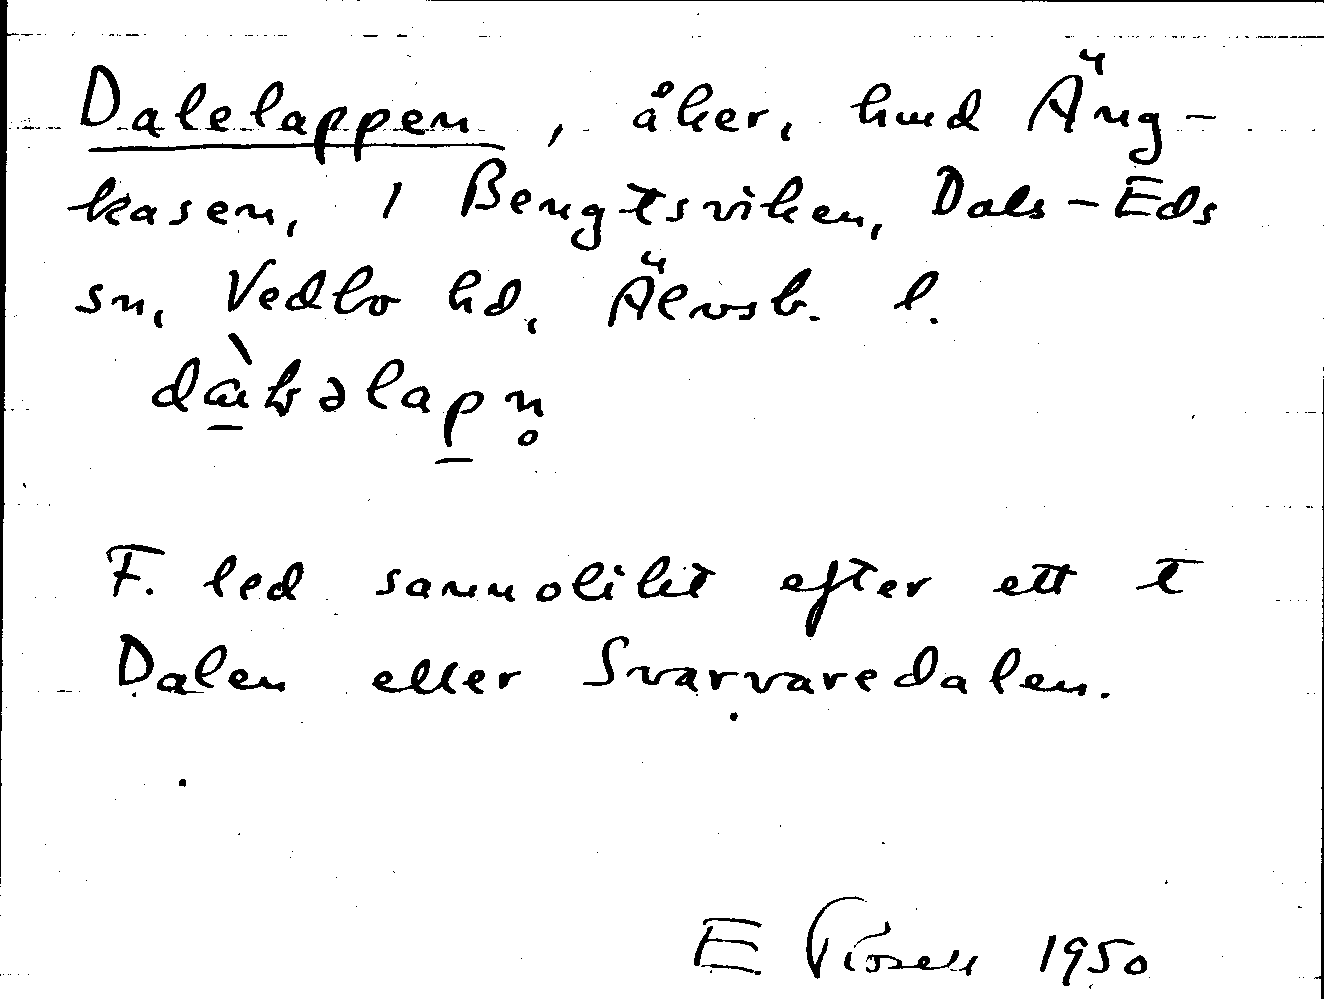 Dalelappen, åker, hmd Äng-
kasen, 1 Bengtsviken, Dals-Eds
sn, Vedbo hd, Älvsb. l.
F. led sannolikt efter ett t
Dalen eller Svarvaredalen.
E Rosell 1950